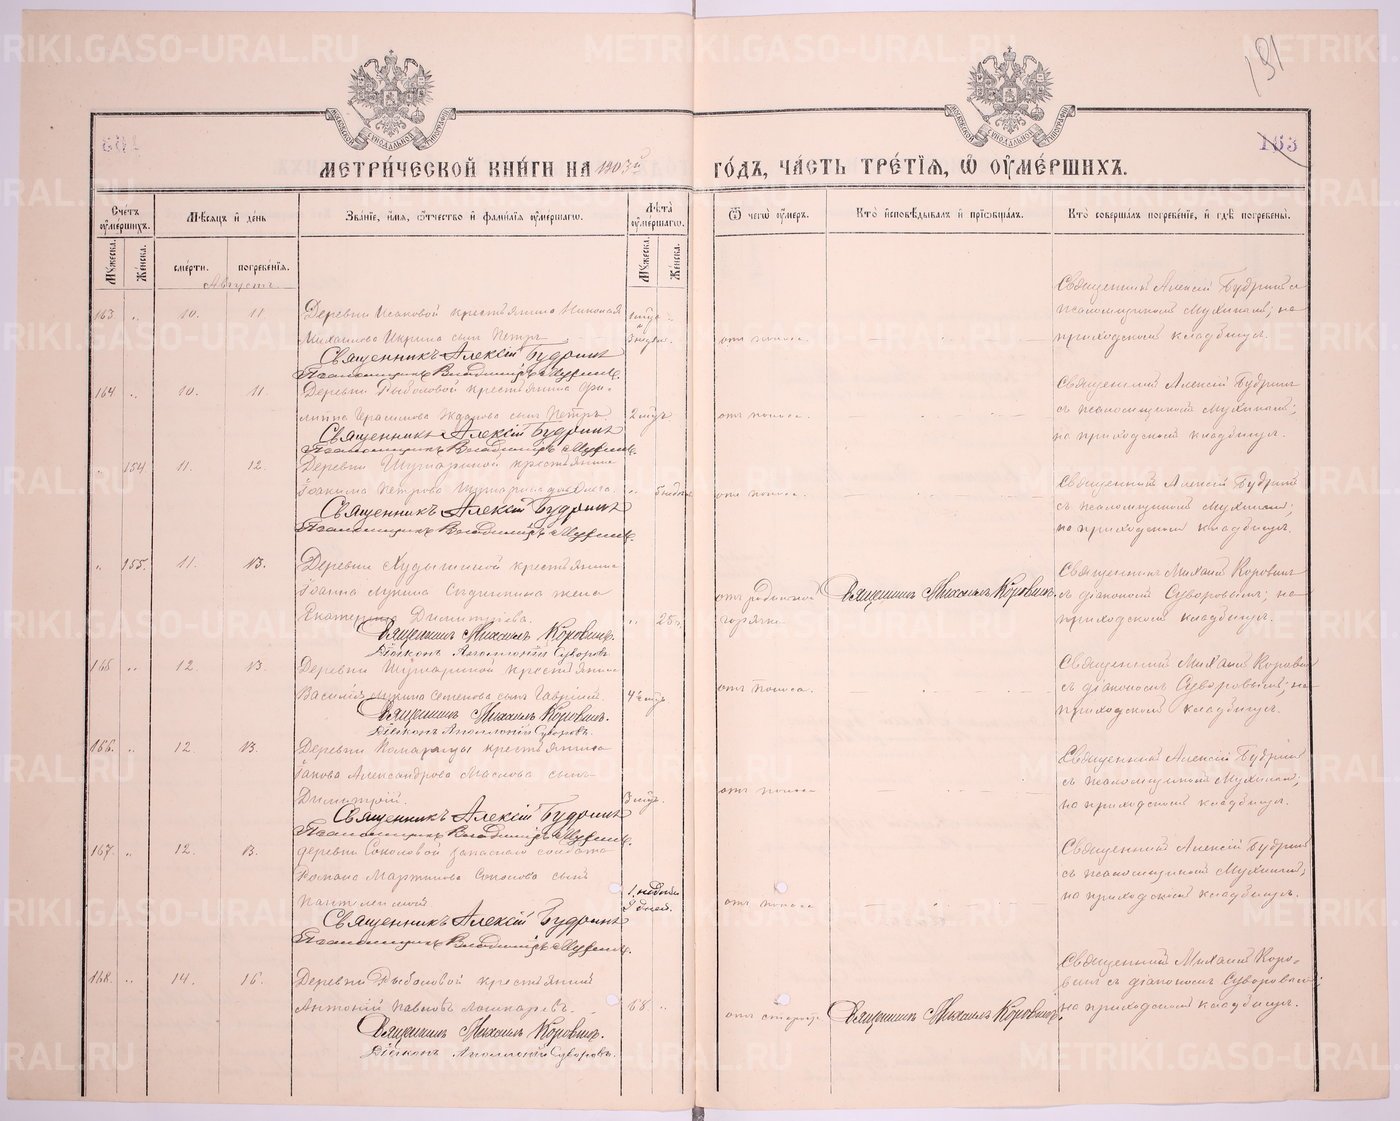 191
183
МЕТРИ́ЧЕСКОЙ КНИ́ГИ НА 1903й ГО́ДЪ, ЧА́СТЬ ТРЕ́ТІѦ, Ѿ ОУМЕ́РШИХЪ.
Счетъ оумершихъ.
Мужеска.
Женска.
Мѣсѧцъ и день
смерти.
погребенїѧ.
Званїе, имѧ, ѿчество и фамилїѧ оумершагѡ.
Лѣта оумершагѡ.
Мужеска.
Женска.
Ѿ чегѡ оумеръ.
Кто исповѣдывалъ и прїобщалъ.
Кто совершалъ погребенїе, и гдѣ погребены.
Августъ
Священникъ Алексій Будринъ с
163 „ 10. 11 Деревни Исаковой крестьянина Николая
псаломщикомъ Мухинымъ; на
сынъ Петръ. 3 нед. отъ поноса. приходскомъ кладбищѣ.
Священникъ Алексій Будринъ
Псаломщикъ Владиміръ Мухинъ.
164 „ 10. 11. Деревни Рыболовой крестьянина Фи-
Священникъ Алексій Будринъ
липпа Герасимова сынъ Петръ. 2 мѣс. отъ поноса. съ псаломщикомъ Мухинымъ;
на приходскомъ кладбищѣ.
Священникъ Алексій Будринъ
Псаломщикъ Владиміръ Мухинъ.
„ 154 11. 12. Деревни крестьянина
Іоакима Петрова дочь Ольга. 5 недѣль отъ поноса. Священникъ Алексій Будринъ
съ псаломщикомъ Мухинымъ;
на приходскомъ кладбищѣ.
Священникъ Алексій Будринъ
Псаломщикъ Владиміръ Мухинъ.
„ 155. 11. 13. Деревни крестьянина
Іоанна Лукина жена
Екатерина Димитріева. „ 25 отъ родильной горячки. Священникъ Михаилъ Коровинъ. Священникъ Михаилъ Коровинъ
съ діакономъ Суворовымъ; на
приходскомъ кладбищѣ.
Священникъ Михаилъ Коровинъ.
Діаконъ Аполлоній Суворовъ.
165 „ 12. 13. Деревни крестьянина
Василія Лукина Семенова сынъ Гавріилъ. 4 мѣс. отъ поноса. Священникъ Михаилъ Коровинъ
съ діакономъ Суворовымъ; на
приходскомъ кладбищѣ.
Священникъ Михаилъ Коровинъ.
Діаконъ Аполлоній Суворовъ.
166. „ 12. 13. Деревни крестьянина
Іакова Александрова Маслова сынъ
Димитрій. 3 мѣс. отъ поноса Священникъ Алексій Будринъ
съ псаломщикомъ Мухинымъ;
на приходскомъ кладбищѣ.
Священникъ Алексій Будринъ
Псаломщикъ Владиміръ Мухинъ.
167. „ 12. 13. деревни Соколовой запаснаго солдата
Романа Мартинова Соколова сынъ
Пантелеимонъ 1 недѣли 2 дней. отъ поноса Священникъ Алексій Будринъ
съ псаломщикомъ Мухинымъ;
на приходскомъ кладбищѣ.
Священникъ Алексій Будринъ
Псаломщикъ Владиміръ Мухинъ.
168. „ 14. 16. Деревни Рыболовой крестьянинъ
Антоній Павловъ 68. „ отъ старости Священникъ Михаилъ Коровинъ. Священникъ Михаилъ Коро-
винъ съ діакономъ Суворовымъ;
на приходскомъ кладбищѣ.
Священникъ Михаилъ Коровинъ.
Діаконъ Аполлоній Суворовъ.
METRIKI.GASO-URAL.RU